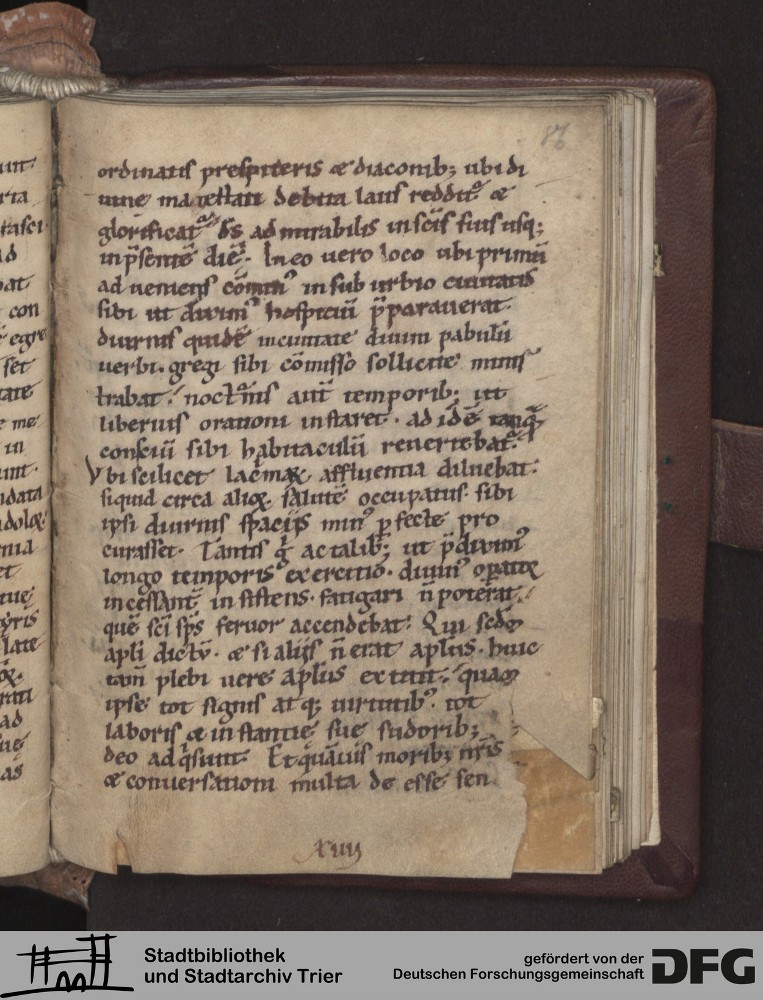 87
ordinatis prespiteris & diaconib; ubi di
uine maiestati debita laus reddit᷒ &
glorificat᷒ d̄s ad mirabilis in scīs suis usq;
in p̄sentē diē. In eo uero loco ubi primū
ad ueniens cōmin᷒ in sub urbio ciuitatis
sibi ut dixim᷒ hospiciū p̄parauerat.
diurnis quidē incunctate diuini pabulū
uerbi. gregi sibi cōmisso sollicite minis
trabat. nocturnis aut̄ temporib; ut
liberius orationi instaret. ad idē tanq̄
consciū sibi habitaculū reuertebat᷒.
Vbi scilicet lacrimaꝝ affluentia diluebat.
siquid circa alioꝝ salutē occupatus. sibi
ipsi diurnis spacijs min᷒ ꝑfecte pro
curasset. Tantis g̊ ac talib; ut p̄dixim᷒
longo temporis exercitio. diuini operatꝝ
incessant̄ insistens. fatigari n̄ poterat.
quē scī sp̄s feruor accendebat. Qui scdm̄
apli dictū. & si alijs n̄ erat aplus. huic
tam̄ plebi uere aplus extitit. quam
ipse tot signis atq; uirtutib᷒. tot
laboris & instantie sue sudorib;
deo adq̇siuit. Et quāuis morib; nr̄is
& conuersationi multa de esse sen
Xiiij
Stadtbibliothek
und Stadtarchiv Trier
gefördert von der
Deutschen Forschungsgemeinschaft
DFG